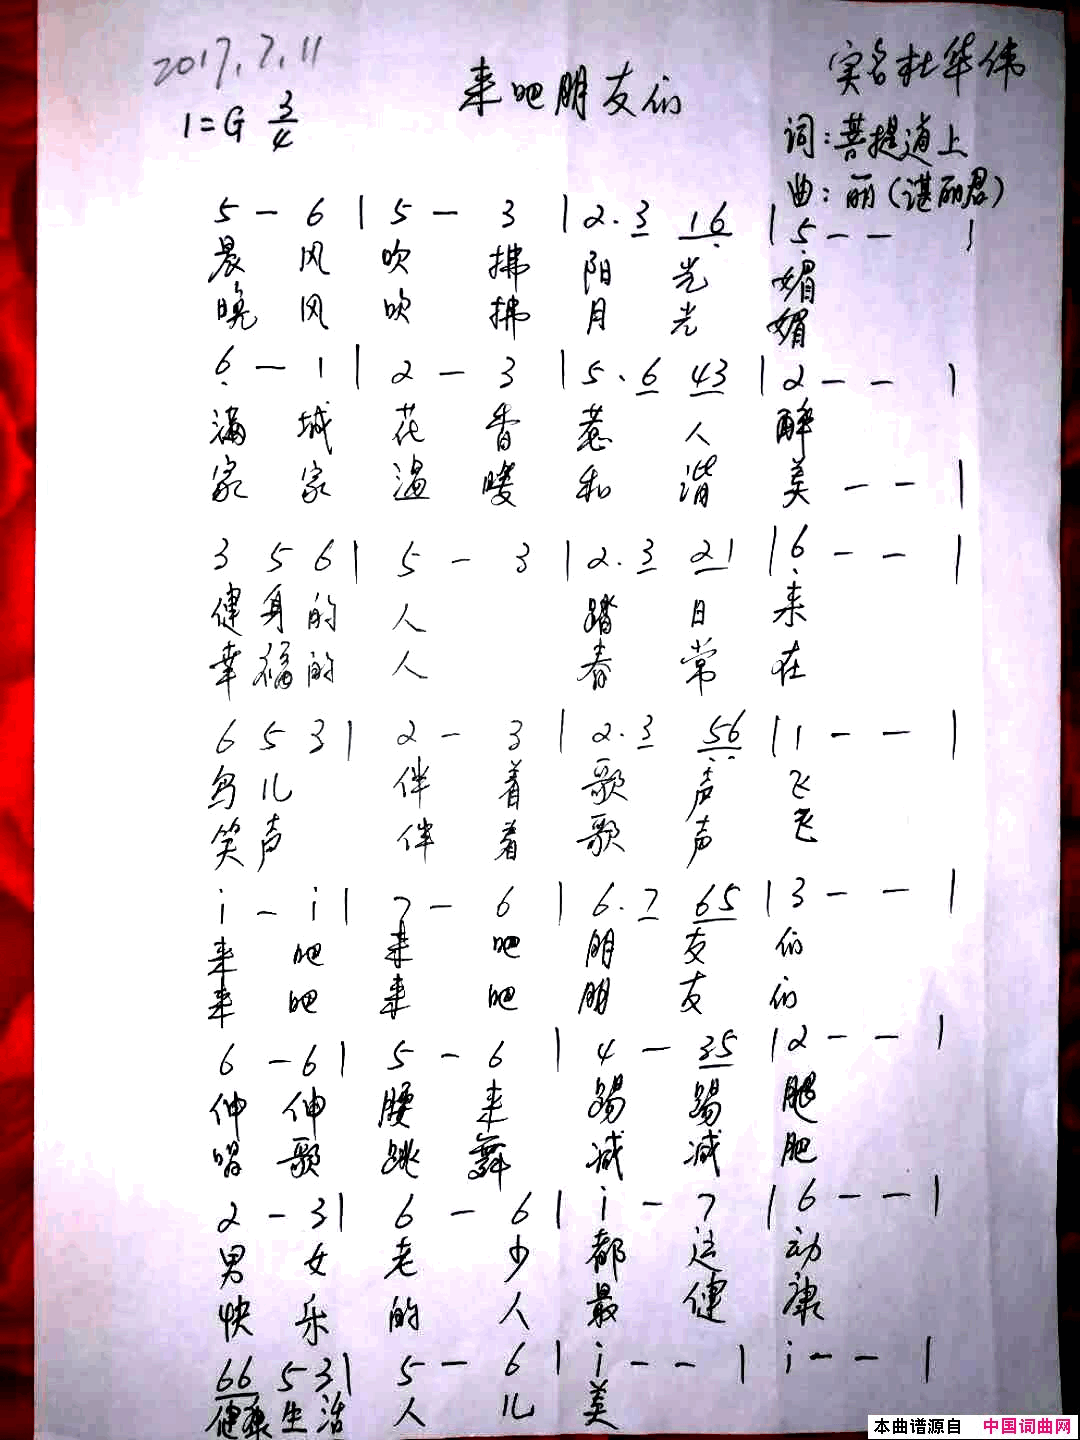 2017.7.11
实名杜华伟
来吧朋友们
1=G 3/4
词:菩提道上
曲:丽(谌丽君)
5 - 6 | 5 - 3 | 2. 3 1 6 | 5 - - |
晨 风 吹 拂 阳 光 媚
晚 风 吹 拂 月 光 媚
6 - 1 | 2 - 3 | 5. 6 43 | 2 - - |
满 城 花 香 惹 人 醉
家 家 温 暖 和 谐 美 - - |
3 5 6 | 5 - 3 | 2. 3 21 | 6 - - |
健 身 的 人 踏 日 来
幸 福 的 人 春 常 在
6 5 3 | 2 - 3 | 2. 3 56 | 1 - - |
鸟 儿 伴 着 歌 声 飞
笑 声 伴 着 歌 声 飞
i - i | 7 - 6 | 6. 7 65 | 3 - - |
来 吧 来 吧 朋 友 们
来 吧 来 吧 朋 友 们
6 - 6 | 5 - 6 | 4 - 35 | 2 - - |
伸 伸 腰 来 踢 踢 腿
唱 歌 跳 舞 减 减 肥
2 - 3 | 6 - 6 | i - 7 | 6 - - |
男 女 老 少 都 运 动
快 乐 的 人 最 健 康
66 5 3 | 5 - 6 | i - - | i - - |
健康 生 活 人 儿 美
本曲谱源自 中国词曲网